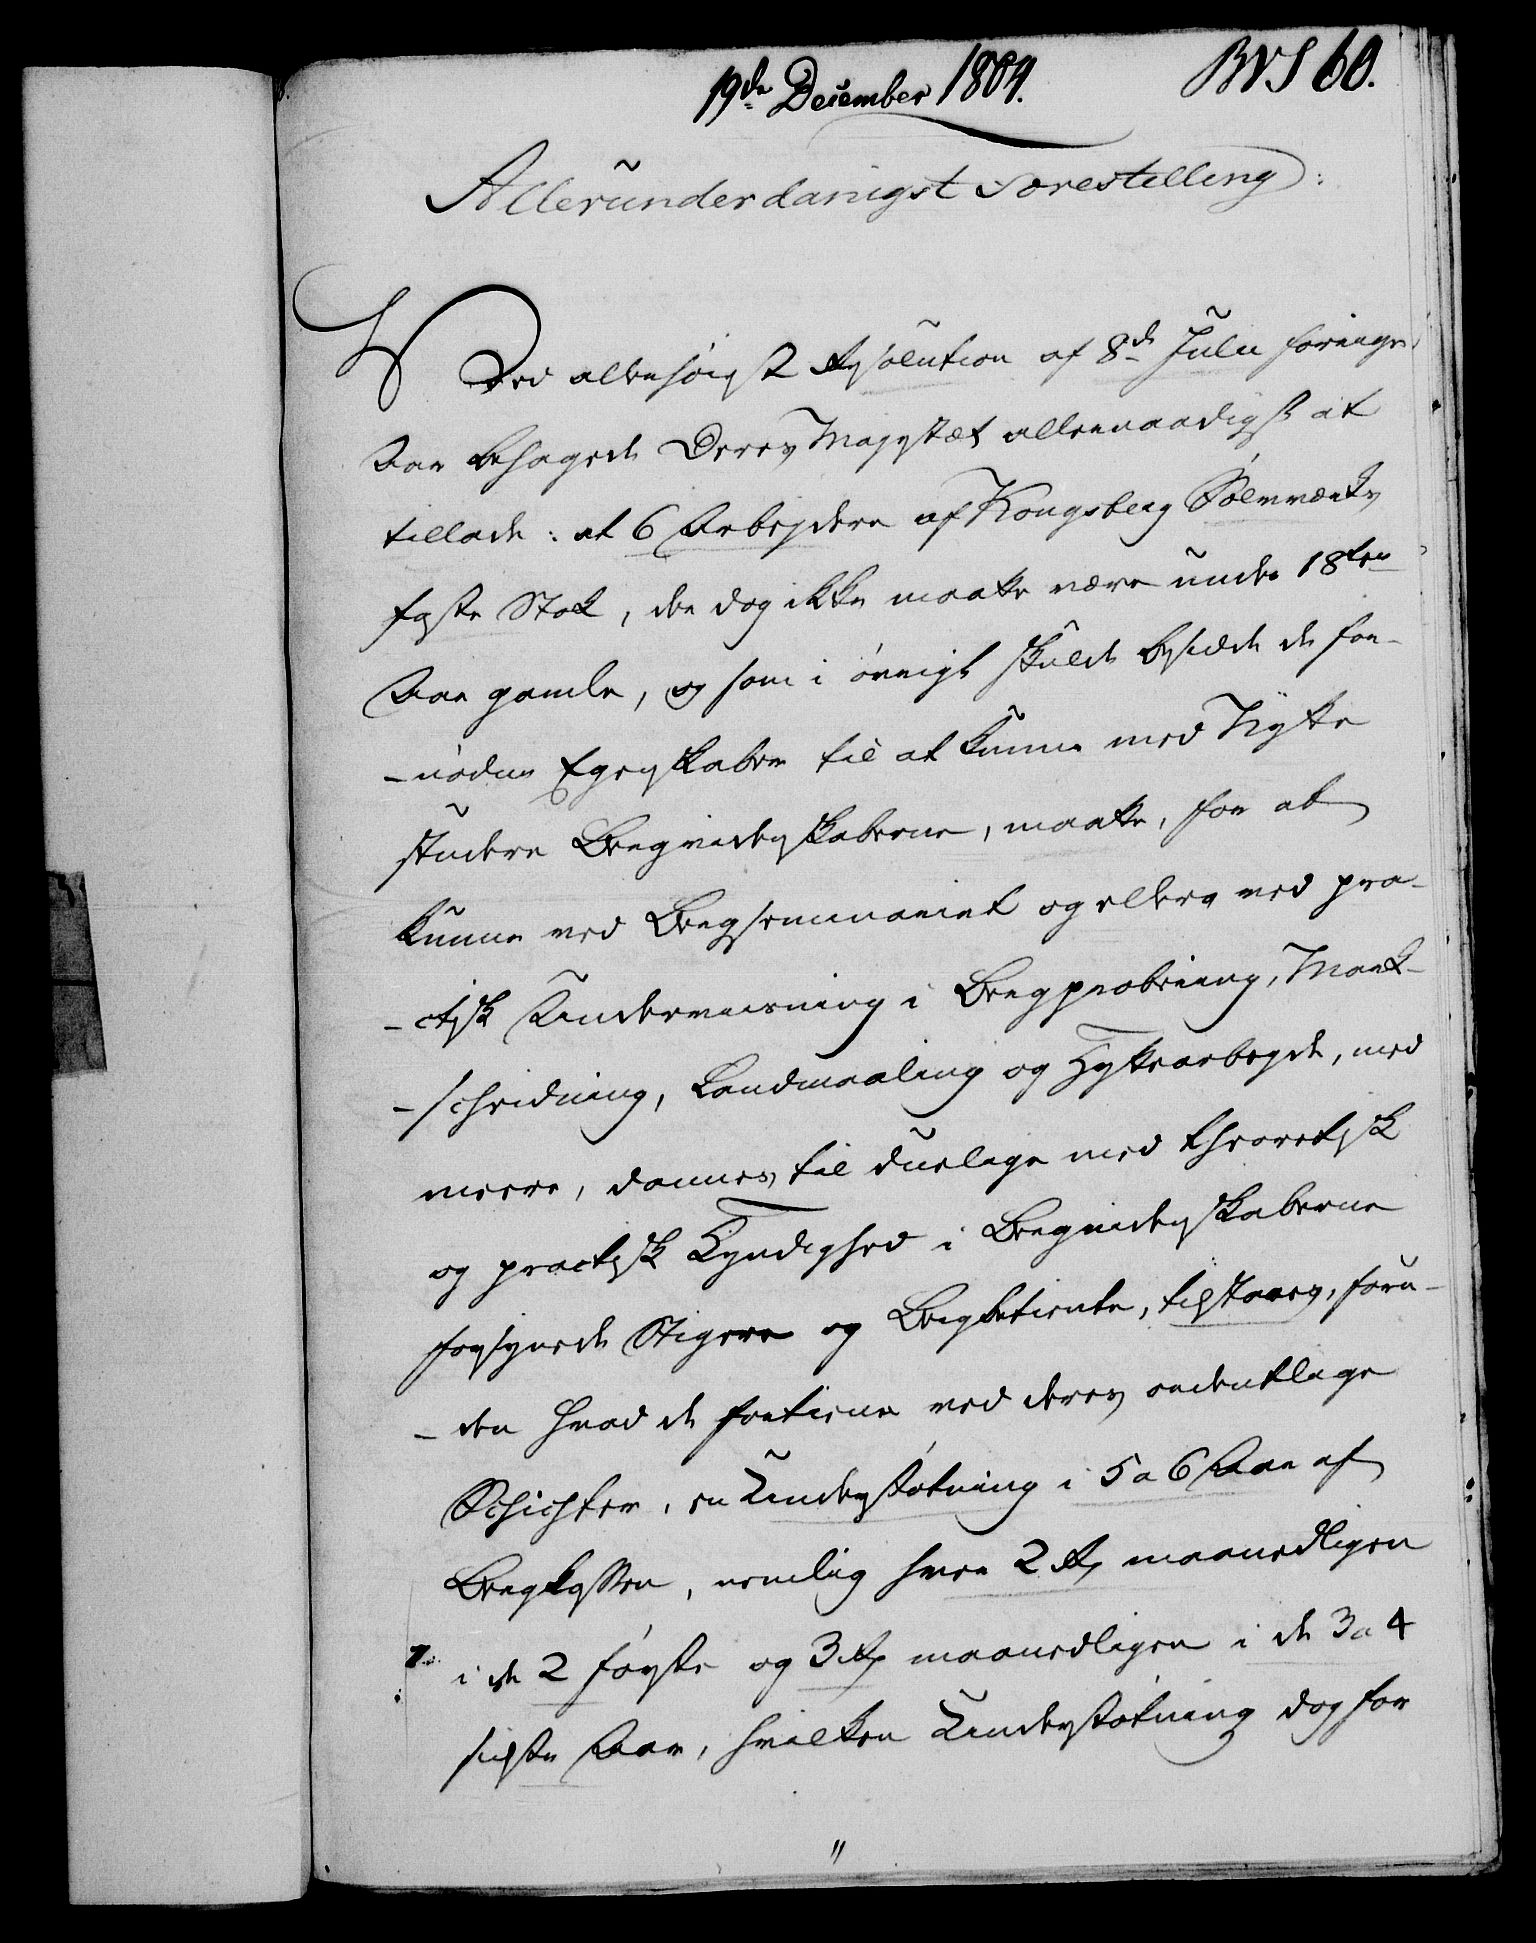 19de December 1804. BVS 60.
Allerunderdanigst Forestilling:
Ved allerhöigst Resolution af 8de Julii forrige
Aar behagede Deres Majestæt allernaadigst at
tillade: at 6 Arbejdere af Kongsberg Sölvværks
faste Stok, der dog ikke maatte være under 18ten
Aar gamle, og som i övrigt skulde besidde de for-
-nödne Egenskaber til at kunne med Nytte
studere Bergvidenskaberne, maatte, for at
kunne ved Bergseminariet og ellers ved pra-
-ctisk Underviisning i Bergprobering, Mark-
-scheidning, Landmaaling og Hyttearbejde, med
meere, dannes til duelige med theoretisk
og practisk Kyndighed i Bergvidenskaberne
forsynede Stigere og Bergbetiente, tilstaaes, foru-
-den hvad de fortiene ved deres ordentlige
Schichter, en Understötning i 5 a 6 Aar af
Bergkassen, nemlig hver 2 Rd maanedligen
i de 2 förste og 3 Rd maanedligen i de 3 a 4
sidste Aar, hvilken Understötning dog for
"